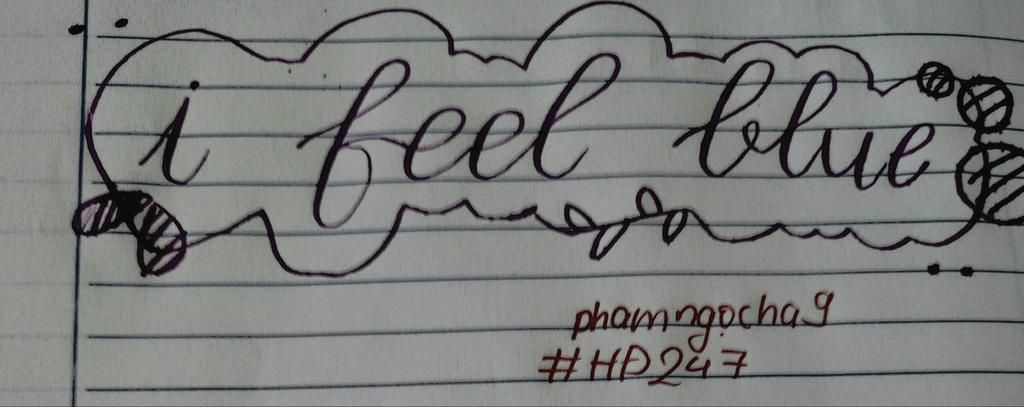 i feel blue
phamngocha9
#HD247